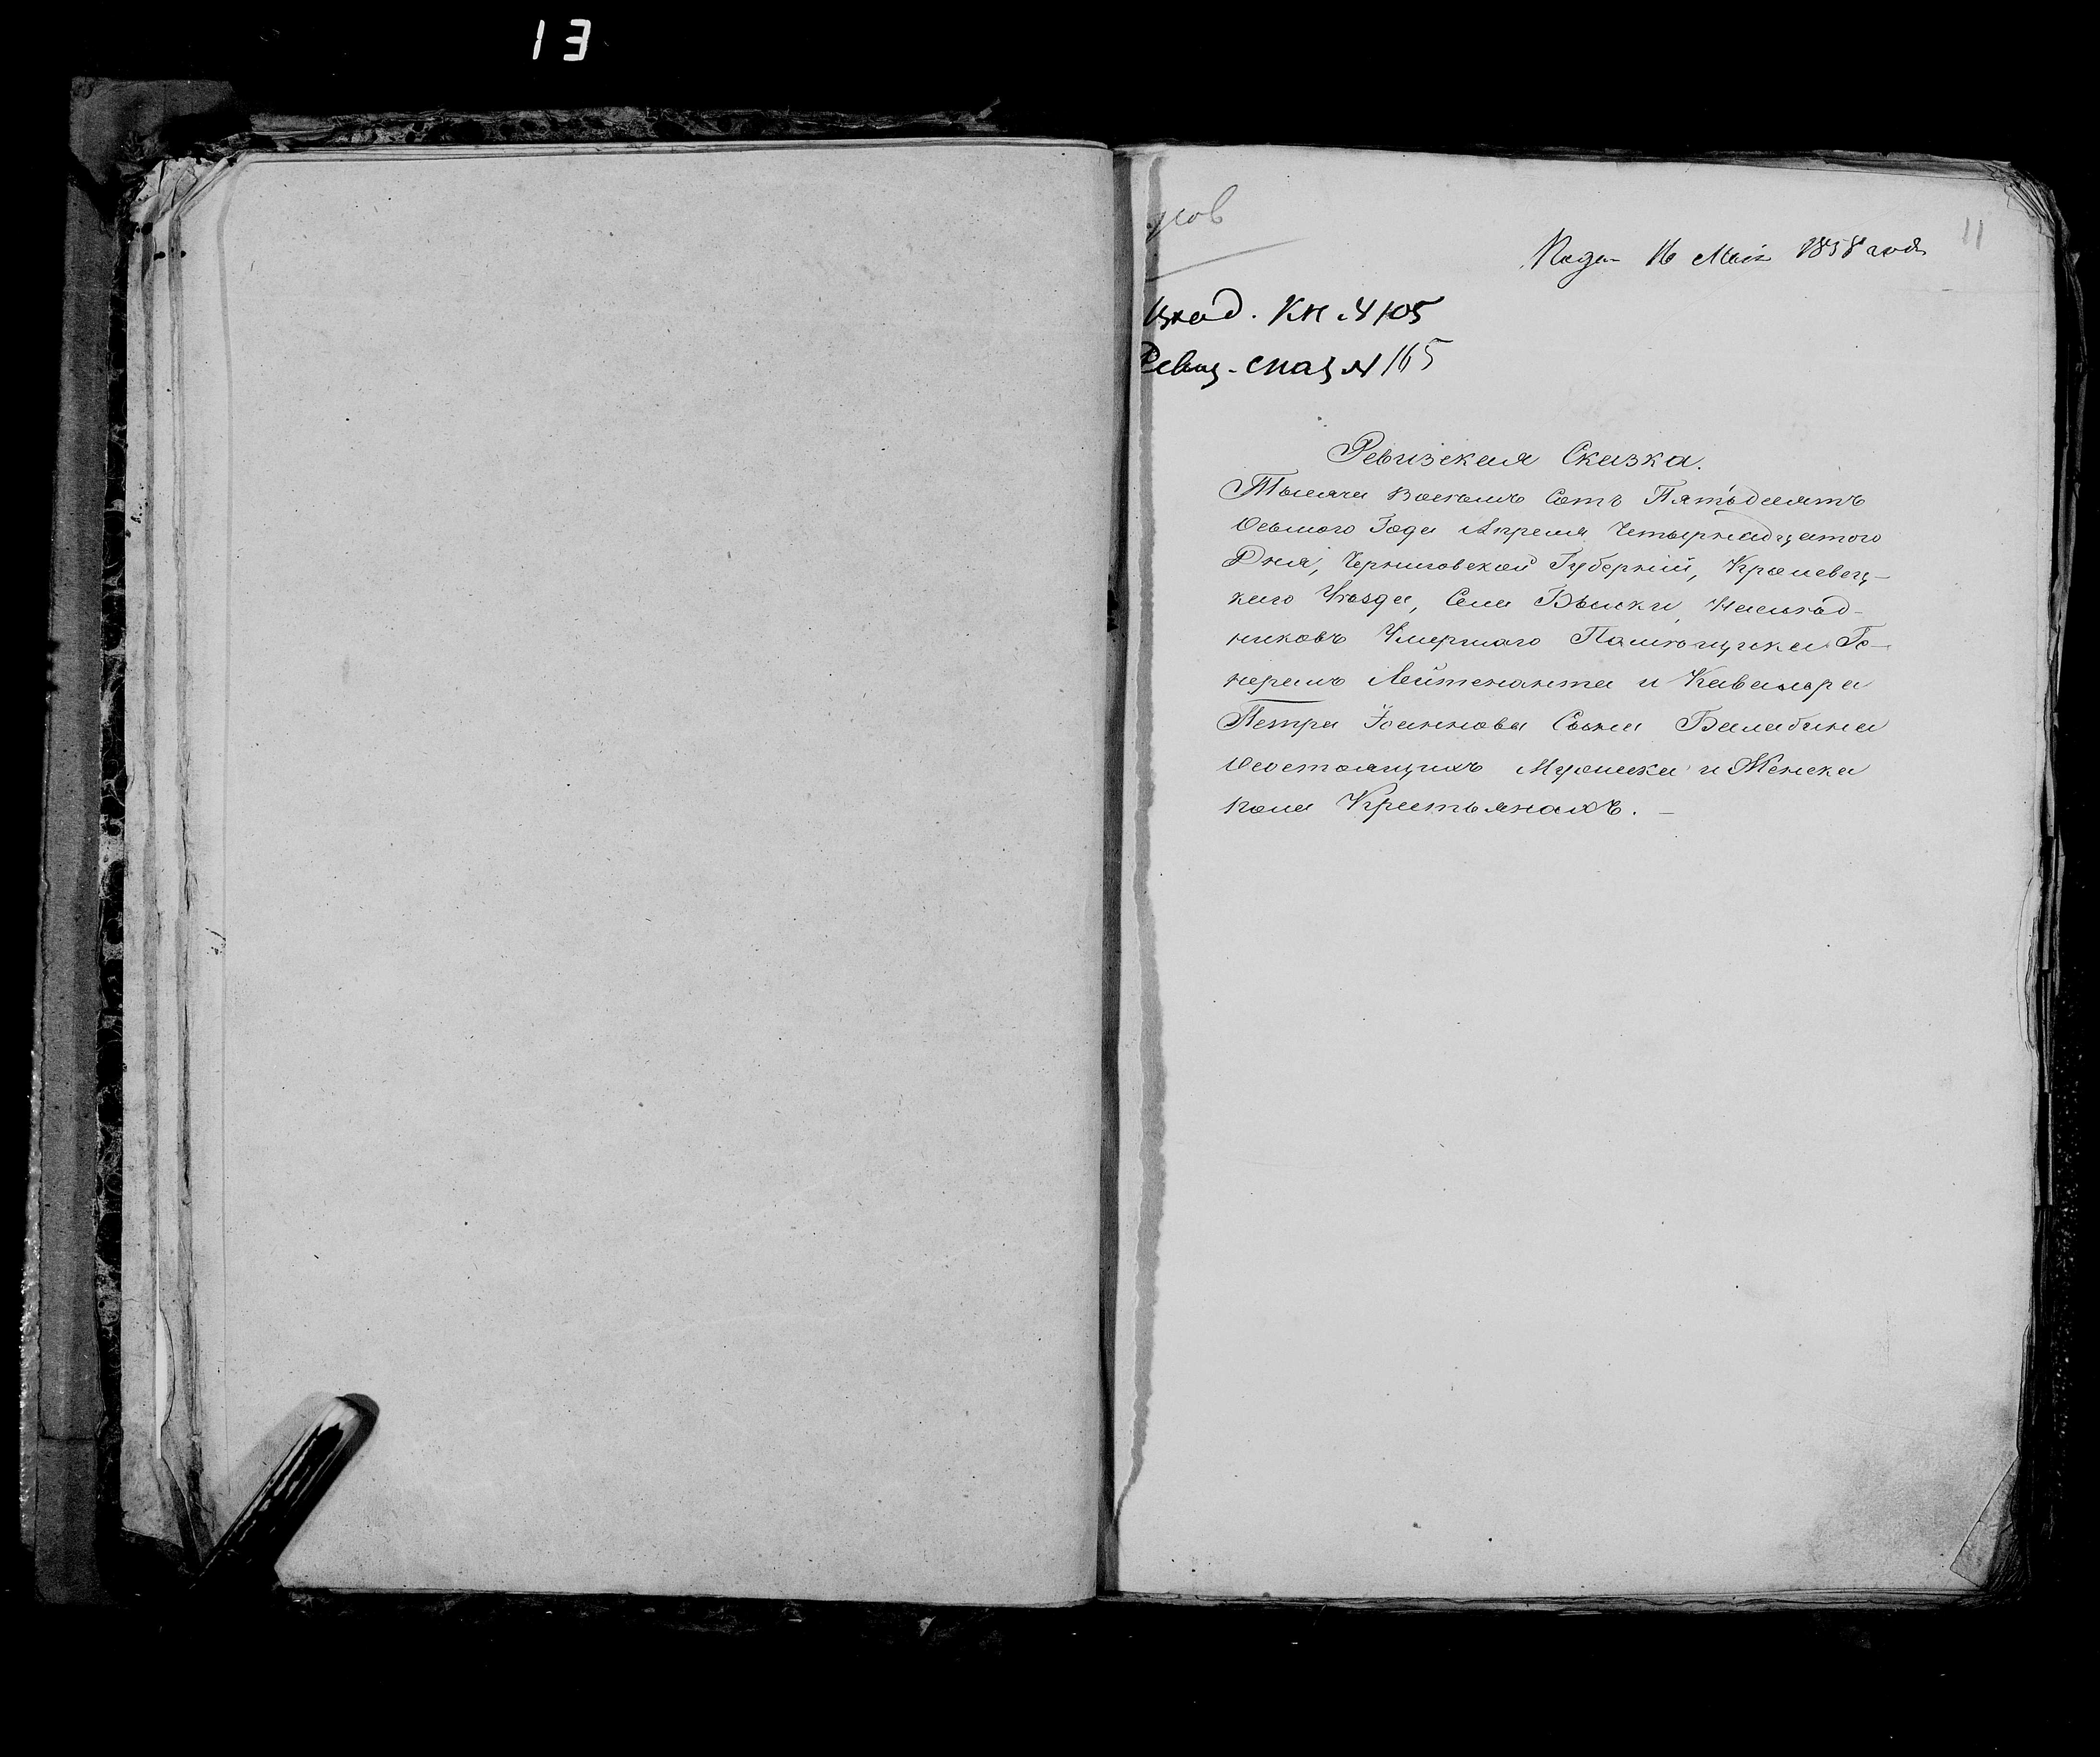 13
11
Пода- 16 Мая 1858 года
Вход. Кн. № 105
Ревиз. сказ № 165
Ревизская Сказка.
Тысяча Восемъ Сотъ Пятьдесятъ
Осьмого Года Апреля Четырнадцатого
Дня, Черниговской Губерніи, Кролевец-
каго Уѣзда, Села Быжи, Наслѣд-
никовъ Умершаго Помѣщика Ге-
нералъ Лейтенанта и Кавалера
Петра Іоаннова Сына Балабина
О состоящихъ Мужеска и Женска
пола Крестьянахъ. —